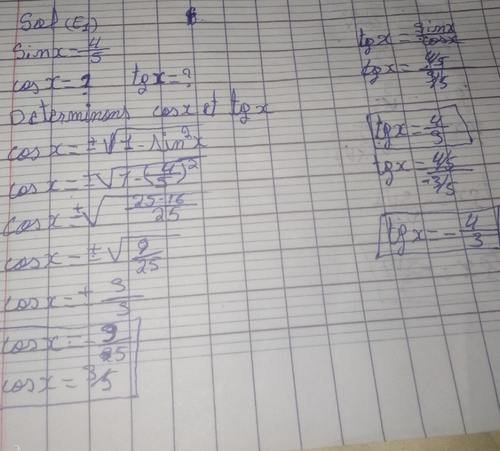 Sol (E1)
Sinx = 4/5
cosx = ? tgx = ?
Determinons cosx et tgx
cosx = ±√(1 - sin²x)
cosx = ±√(1 - (4/5)²)
cosx = ±√((25-16)/25)
cosx = ±√(9/25)
cosx = + 3/5
cosx = - 3/5
cosx = 3/5
tgx = sinx/cosx
tgx = (4/5)/(3/5)
tgx = 4/3
tgx = (4/5)/(-3/5)
tgx = - 4/3